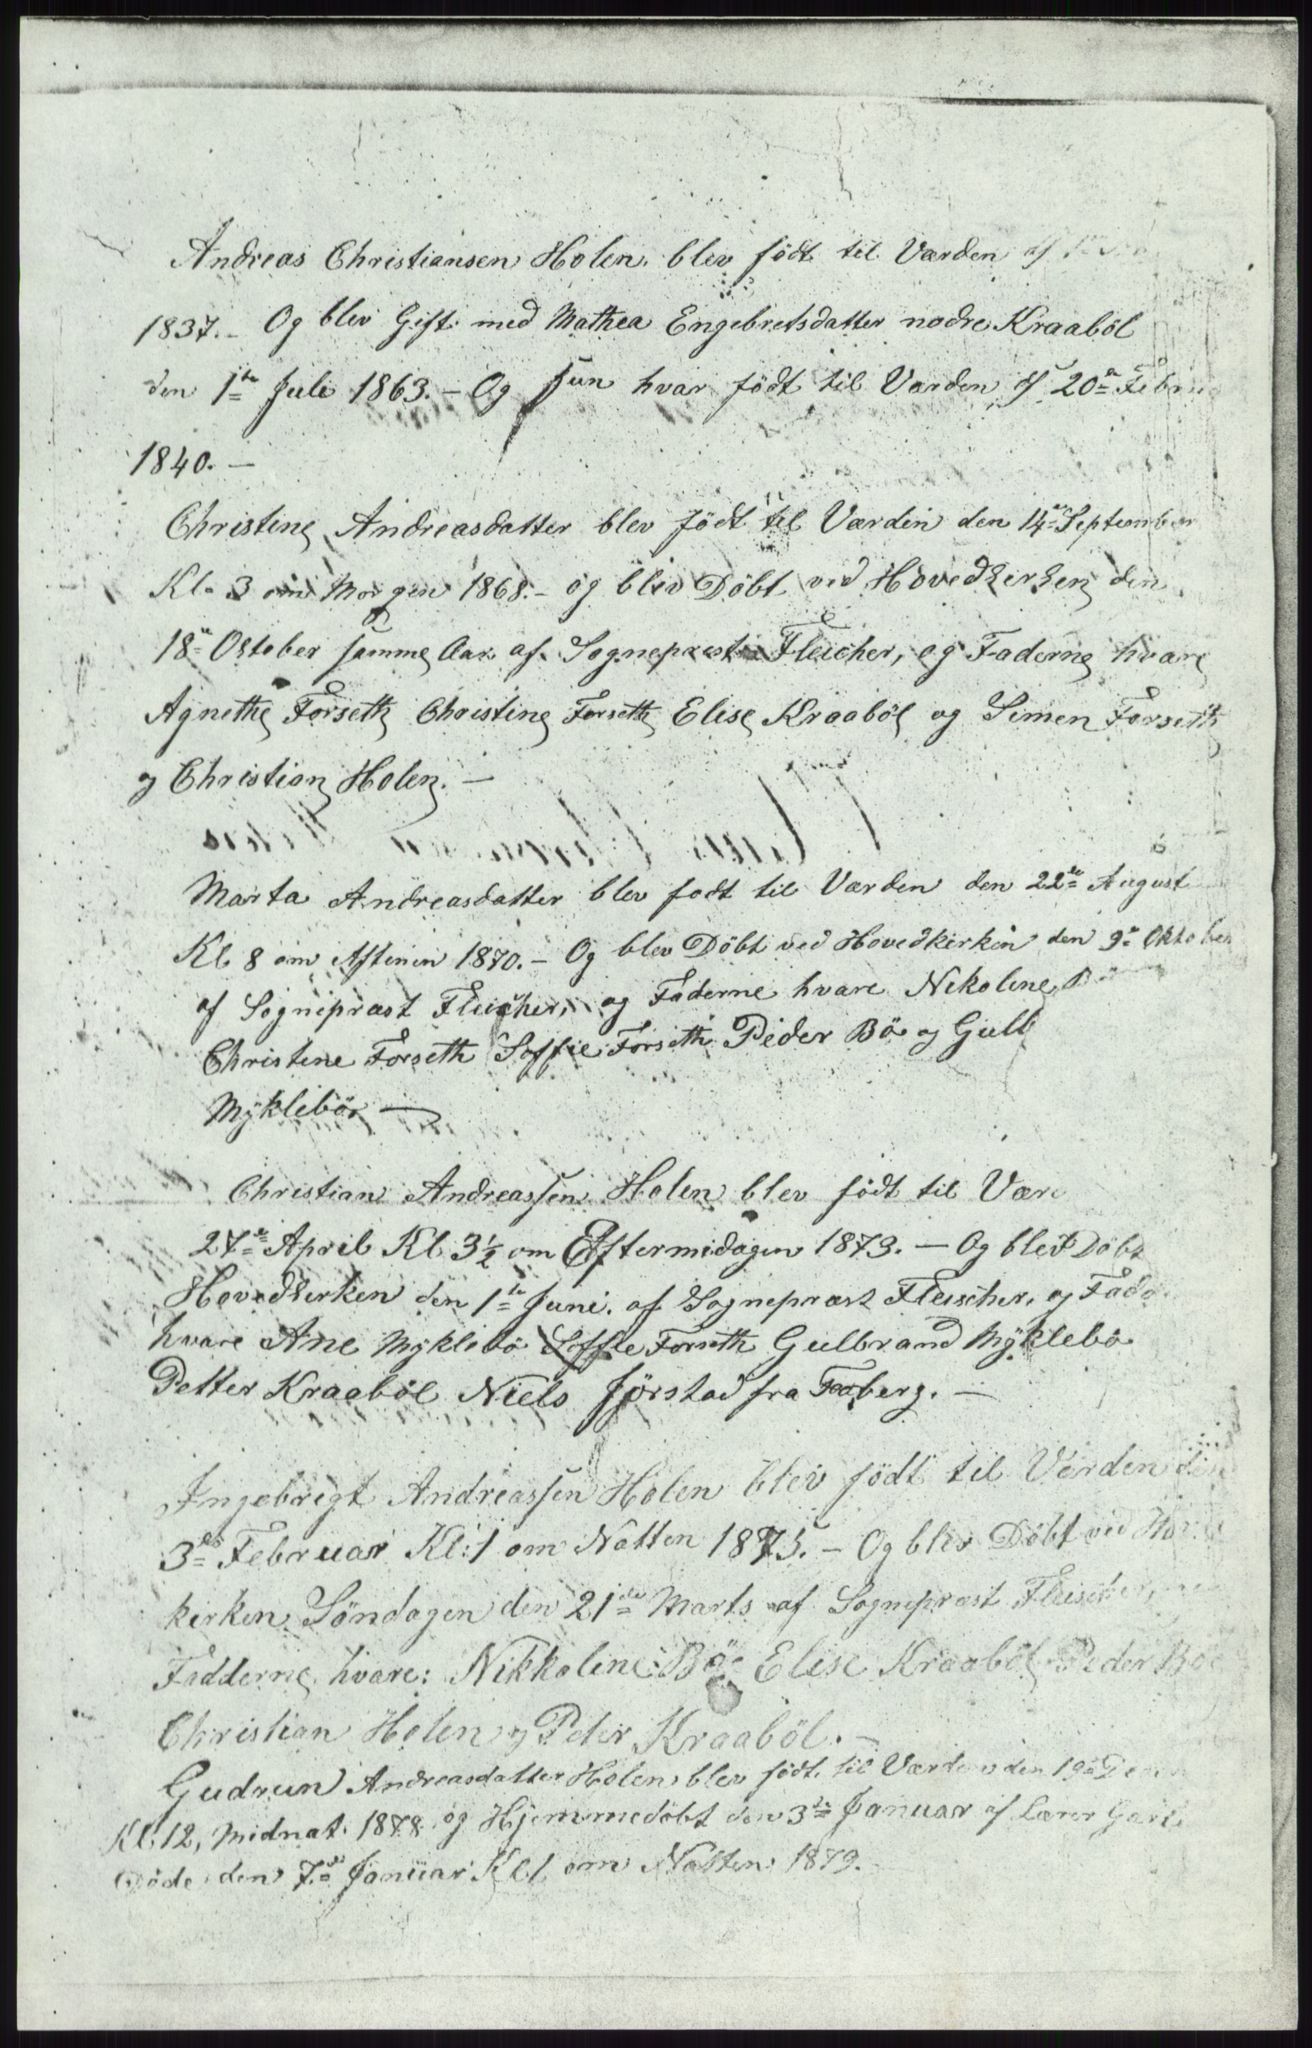 Andreas Christiansen Holen. blev født til Værden af
1837. – Og blev Gift med Mathea Engebretsdatter nodre Kraaböl
den 1te Juli 1863. – Og hun hvar födt til Værden d 20de Februa
1840. –
Christine Andreasdatter blev födt til Værdin den 14de September
Kl. 3 om Morgen 1868. – og bliv Döbt ved Hovedkirken den
18de Oktober samme Aar af Sogneprest Fleicher, og Faderne hvare
Agnethe Forseth Christine Forseth Elise Kraaböl og Simen Forseth
og Christian Holen. –
Marta Andreasdatter blev fodt til Værden den 22de August
Kl 8 om Aftenen 1870. – Og blev Döbt ved Hovedkirkin den 9de Oktober
af Sognepræst Fleicher, og Faderne hvare Nekoline B
Christine Forseth Soffie Forseth Peder Bö og Gull
Myklebör –
Christian Andreassen Holen blev födt til Vær
27de April Kl. 3½ om Eftermidagen 1873. – Og blev Döbt
Hovedkerken den 1te Juni. af Sognepræst Fleischer, og Fad
hvare Ane Myklebö Soffie Forseth Gulbrand Myklebö
Petter Kraaböl Niels Jörstad fra Faaberg. –
Ingebrigt Andreassen Holen blev födt til Værden den
3de Februar Kl: 1 om Natten 1875. – Og blev Döbt ved Hov
kirken Söndagen den 21de Marts af Sogneprast Fleischer,
Fadderne hvare: Nikkoline Bö Elise Kraaböl Peder Bö
Christian Holen og Peter Kraaböl. –
Gudrun Andreasdatter Holen blev födt til Værden den 19de Decem
Kl. 12, Midnat 1878 og Hjemmedöbt den 3de Januar af Lærer
Döde den 7de Januar Kl 1 om Natten 1879.